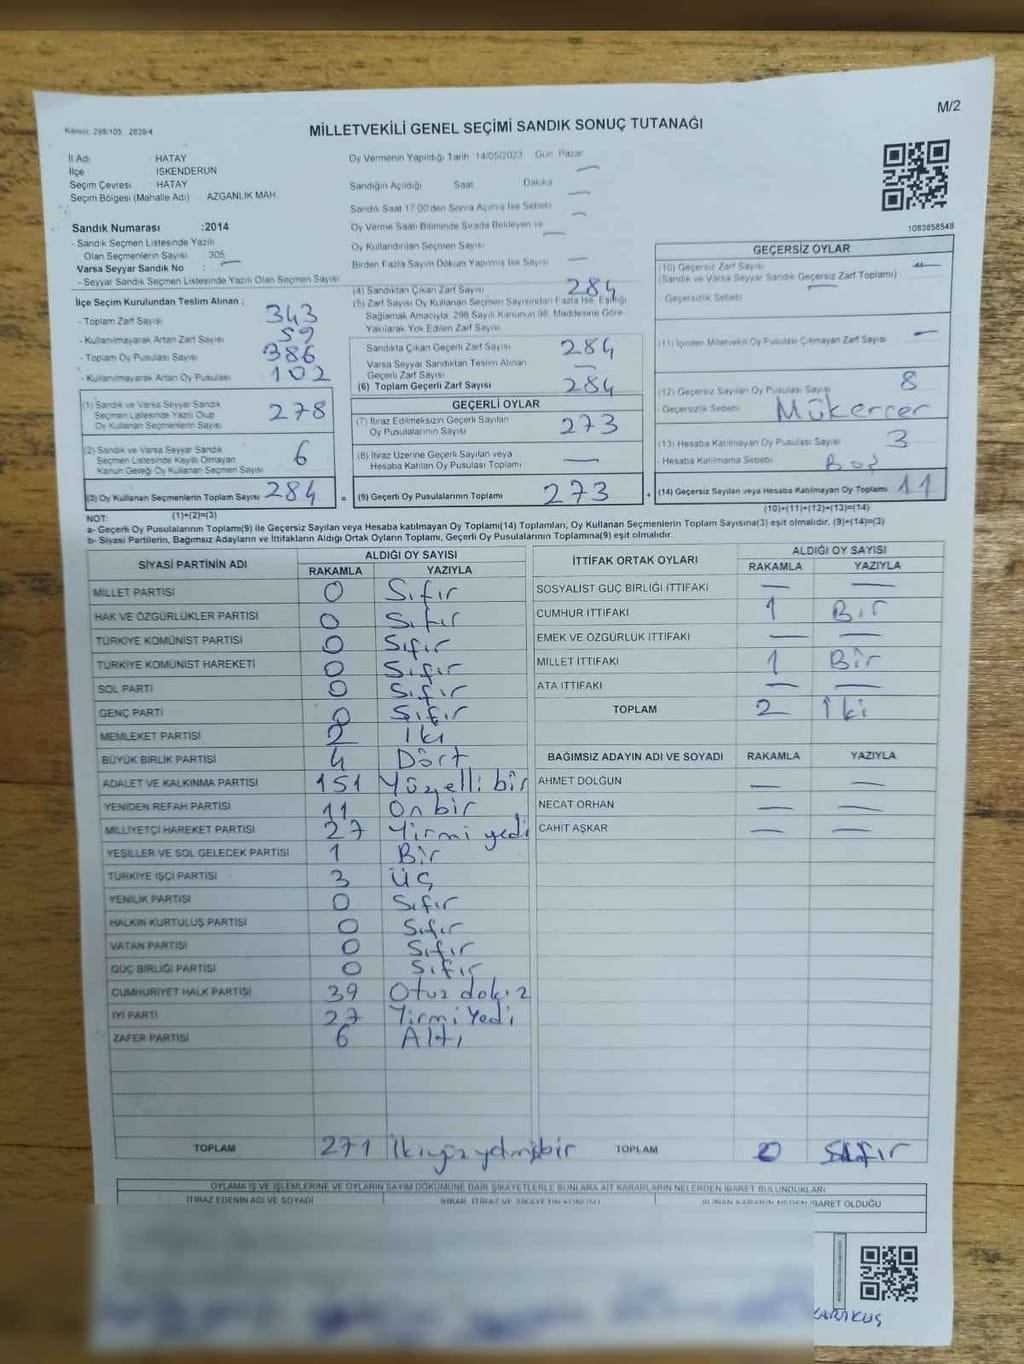 M/2
Kanun: 298/105 2839/4
MİLLETVEKİLİ GENEL SEÇİMİ SANDIK SONUÇ TUTANAĞI
İl Adı HATAY
İlçe İSKENDERUN
Seçim Çevresi HATAY
Seçim Bölgesi (Mahalle Adı) AZGANLIK MAH
Sandık Numarası :2014
- Sandık Seçmen Listesinde Yazılı
Olan Seçmenlerin Sayısı 305
Varsa Seyyar Sandık No :
- Seyyar Sandık Seçmen Listesinde Yazılı Olan Seçmen Sayısı
Oy Vermenin Yapıldığı Tarih 14/05/2023 Gün Pazar
Sandığın Açıldığı Saat Dakika
Sandık Saat 17:00'den Sonra Açılmış İse Sebebi
Oy Verme Saati Bitiminde Sırada Bekleyen ve
Oy Kullandırılan Seçmen Sayısı
Birden Fazla Sayım Döküm Yapılmış İse Sayısı —
1083858548
İlçe Seçim Kurulundan Teslim Alınan :
- Toplam Zarf Sayısı 343
- Kullanılmayarak Artan Zarf Sayısı 59
- Toplam Oy Pusulası Sayısı 386
- Kullanılmayarak Artan Oy Pusulası 102
(1) Sandık ve Varsa Seyyar Sandık
Seçmen Listesinde Yazılı Olup
Oy Kullanan Seçmenlerin Sayısı 278
(2) Sandık ve Varsa Seyyar Sandık
Seçmen Listesinde Kayıtlı Olmayan
Kanun Gereği Oy Kullanan Seçmen Sayısı 6
(3) Oy Kullanan Seçmenlerin Toplam Sayısı 284 =
(4) Sandıktan Çıkan Zarf Sayısı 284
(5) Zarf Sayısı Oy Kullanan Seçmen Sayısından Fazla İse, Eşitliği
Sağlamak Amacıyla, 298 Sayılı Kanunun 98. Maddesine Göre
Yakılarak Yok Edilen Zarf Sayısı
Sandıkta Çıkan Geçerli Zarf Sayısı 284
Varsa Seyyar Sandıktan Teslim Alınan
Geçerli Zarf Sayısı —
(6) Toplam Geçerli Zarf Sayısı 284
GEÇERLİ OYLAR
(7) İtiraz Edilmeksizin Geçerli Sayılan
Oy Pusulalarının Sayısı 273
(8) İtiraz Üzerine Geçerli Sayılan veya
Hesaba Katılan Oy Pusulası Toplamı —
(9) Geçerli Oy Pusulalarının Toplamı 273 +
GEÇERSİZ OYLAR
(10) Geçersiz Zarf Sayısı —
(Sandık ve Varsa Seyyar Sandık Geçersiz Zarf Toplamı)
- Geçersizlik Sebebi
(11) İçinden Milletvekili Oy Pusulası Çıkmayan Zarf Sayısı —
(12) Geçersiz Sayılan Oy Pusulası Sayısı 8
- Geçersizlik Sebebi Mükerrer
(13) Hesaba Katılmayan Oy Pusulası Sayısı 3
- Hesaba Katılmama Sebebi Boş
(14) Geçersiz Sayılan veya Hesaba Katılmayan Oy Toplamı 11
NOT: (1)+(2)=(3) (10)+(11)+(12)+(13)=(14)
a- Geçerli Oy Pusulalarının Toplamı(9) ile Geçersiz Sayılan veya Hesaba katılmayan Oy Toplamı(14) Toplamları, Oy Kullanan Seçmenlerin Toplam Sayısına(3) eşit olmalıdır. (9)+(14)=(3)
b- Siyasi Partilerin, Bağımsız Adayların ve İttifakların Aldığı Ortak Oyların Toplamı, Geçerli Oy Pusulalarının Toplamına(9) eşit olmalıdır.
SİYASİ PARTİNİN ADI ALDIĞI OY SAYISI
RAKAMLA YAZIYLA
MİLLET PARTİSİ 0 Sıfır
HAK VE ÖZGÜRLÜKLER PARTİSİ 0 Sıfır
TÜRKİYE KOMÜNİST PARTİSİ 0 Sıfır
TÜRKİYE KOMÜNİST HAREKETİ 0 Sıfır
SOL PARTİ 0 Sıfır
GENÇ PARTİ 0 Sıfır
MEMLEKET PARTİSİ 2 İki
BÜYÜK BİRLİK PARTİSİ 4 Dört
ADALET VE KALKINMA PARTİSİ 151 Yüzelli bir
YENİDEN REFAH PARTİSİ 11 On bir
MİLLİYETÇİ HAREKET PARTİSİ 27 Yirmi yedi
YEŞİLLER VE SOL GELECEK PARTİSİ 1 Bir
TÜRKİYE İŞÇİ PARTİSİ 3 Üç
YENİLİK PARTİSİ 0 Sıfır
HALKIN KURTULUŞ PARTİSİ 0 Sıfır
VATAN PARTİSİ 0 Sıfır
GÜÇ BİRLİĞİ PARTİSİ 0 Sıfır
CUMHURİYET HALK PARTİSİ 39 Otuz dokuz
İYİ PARTİ 27 Yirmi Yedi
ZAFER PARTİSİ 6 Altı
TOPLAM 271 İkiyüz yetmişbir
İTTİFAK ORTAK OYLARI ALDIĞI OY SAYISI
RAKAMLA YAZIYLA
SOSYALİST GÜÇ BİRLİĞİ İTTİFAKI — —
CUMHUR İTTİFAKI 1 Bir
EMEK VE ÖZGÜRLÜK İTTİFAKI — —
MİLLET İTTİFAKI 1 Bir
ATA İTTİFAKI — —
TOPLAM 2 İki
BAĞIMSIZ ADAYIN ADI VE SOYADI RAKAMLA YAZIYLA
AHMET DOLĞUN — —
NECAT ORHAN — —
CAHİT AŞKAR — —
TOPLAM 0 Sıfır
OYLAMA İŞ VE İŞLEMLERİNE VE OYLARIN SAYIM DÖKÜMÜNE DAİR ŞİKAYETLERLE BUNLARA AİT KARARLARIN NELERDEN İBARET BULUNDUKLARI
İTİRAZ EDENİN ADI VE SOYADI İHBAR, İTİRAZ VE ŞİKAYETİN KONUSU ALINAN KARARIN NEDEN İBARET OLDUĞU
KARAKUŞ